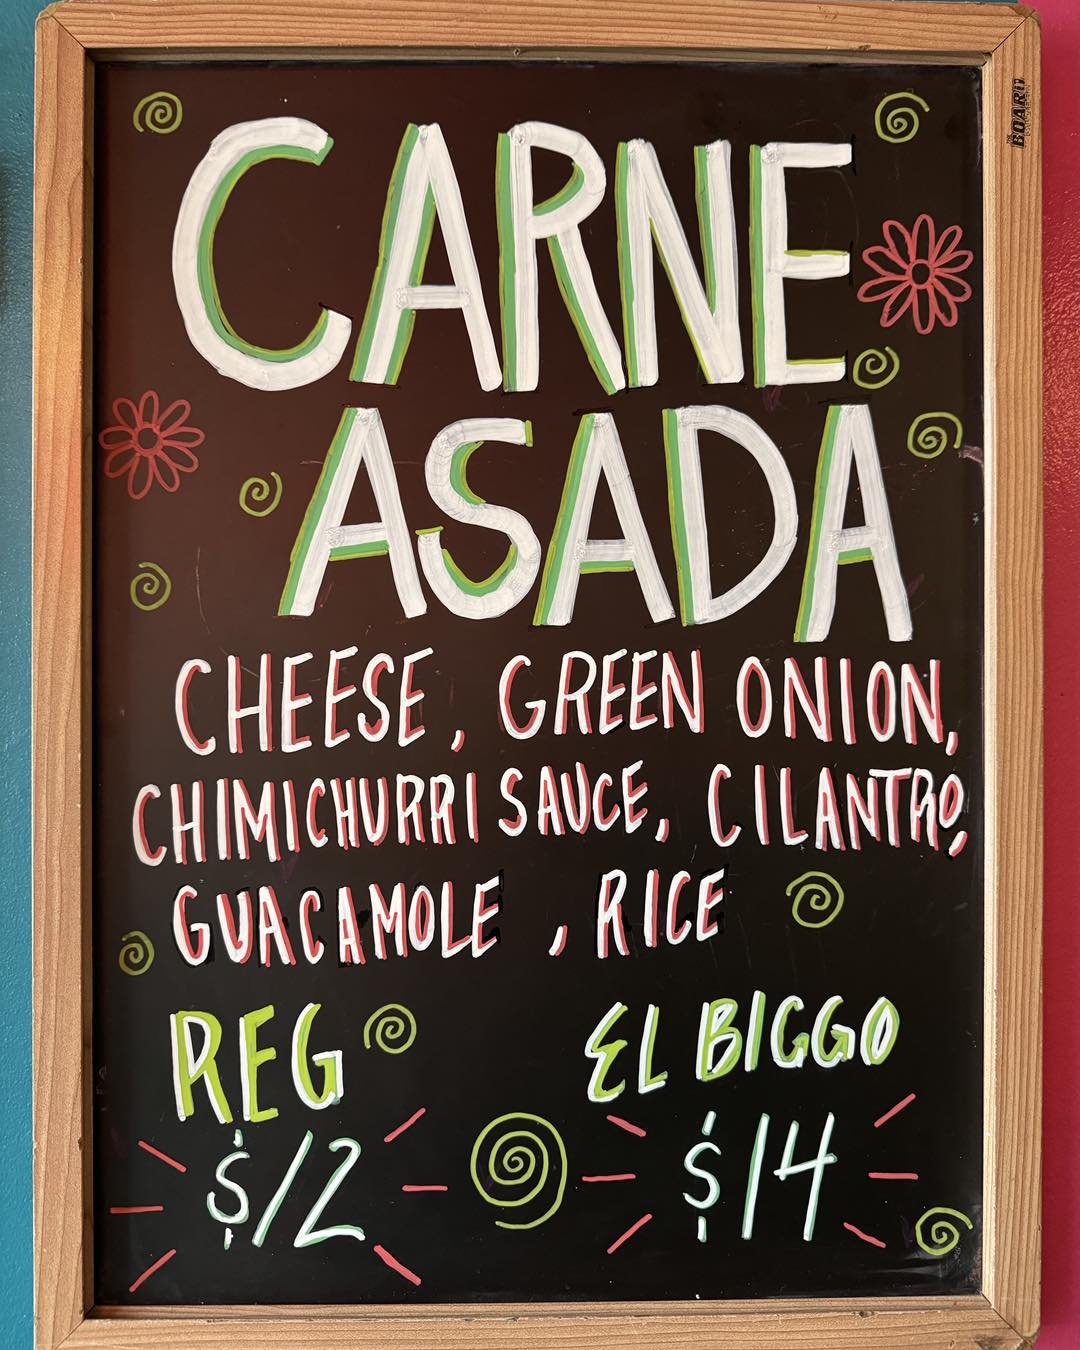 CARNE
ASADA
CHEESE, GREEN ONION,
CHIMICHURRI SAUCE, CILANTRO,
GUACAMOLE , RICE
REG
EL BIGGO
$12
$14
BOARD